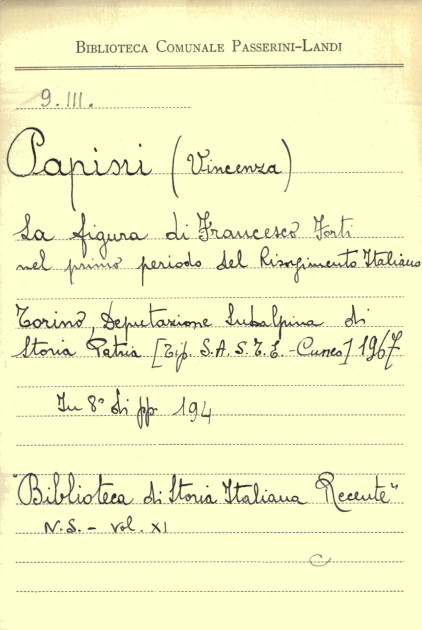 BIBLIOTECA COMUNALE PASSERINI-LANDI
9. III.
Papisri (Vincenza)
La figura di Francesco Forti
nel primo periodo del Risorgimento Italiano
Torino, Deputazione Subalpina di
Storia Patria [Tip. S.A.S.T.E. - Cuneo] 1967
In 8° di pp 194
"Biblioteca di Storia Italiana Recente"
N.S. - vol. XI
C